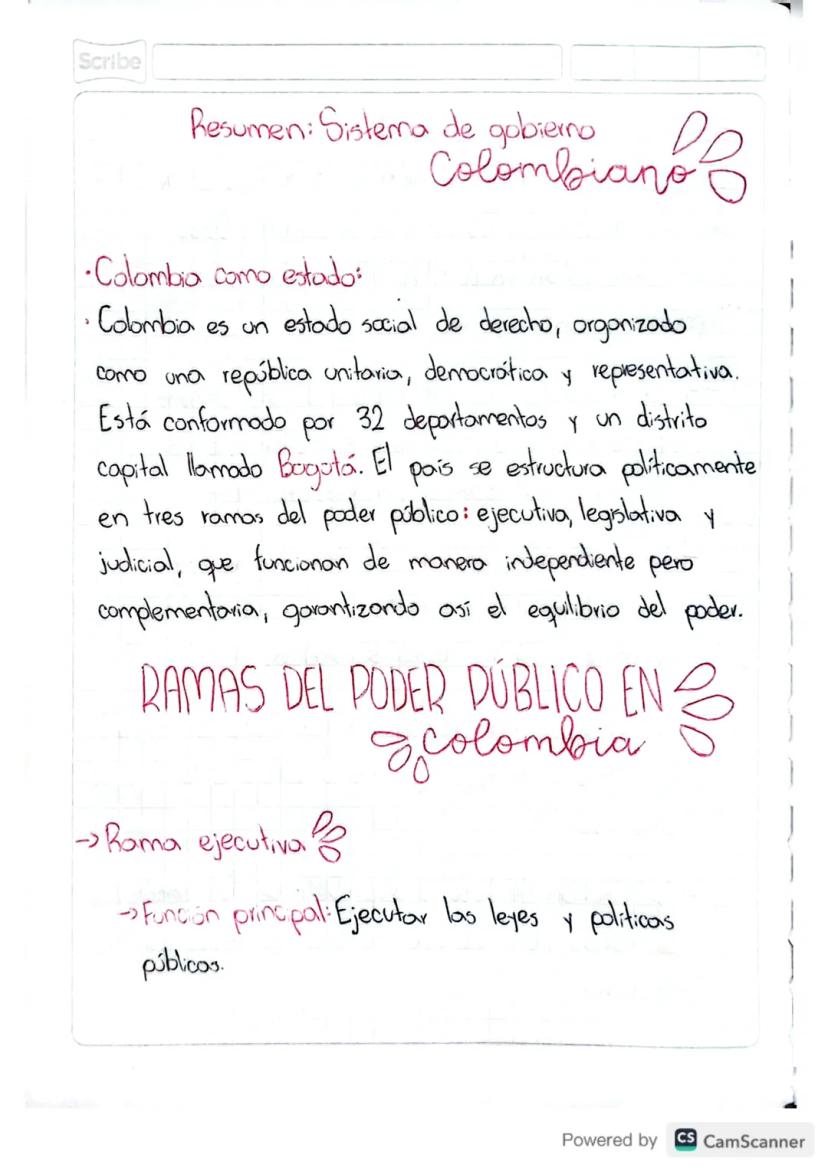 Scribe
Resumen: Sistema de gobierno
Colombiano
· Colombia como estado:
· Colombia es un estado social de derecho, organizado
como una república unitaria, democrática y representativa.
Está conformado por 32 departamentos y un distrito
capital llamado Bogotá. El país se estructura políticamente
en tres ramas del poder público: ejecutiva, legislativa y
judicial, que funcionan de manera independiente pero
complementaria, garantizando así el equilibrio del poder.
RAMAS DEL PODER PÚBLICO EN
colombia
→ Rama ejecutiva
→ Función principal: Ejecutar las leyes y políticas
públicas.
Powered by CS CamScanner